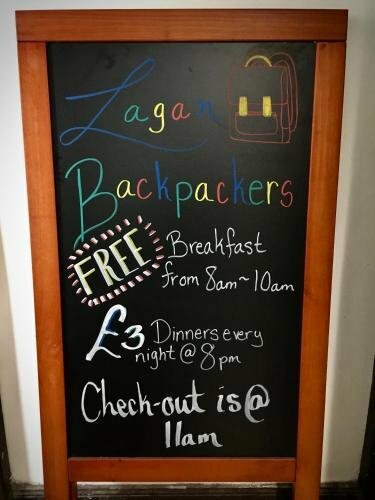 Lagan
Backpackers
FREE
Breakfast
from 8am~10am
£3 Dinners every
night @ 8pm
Check-out is @
11am